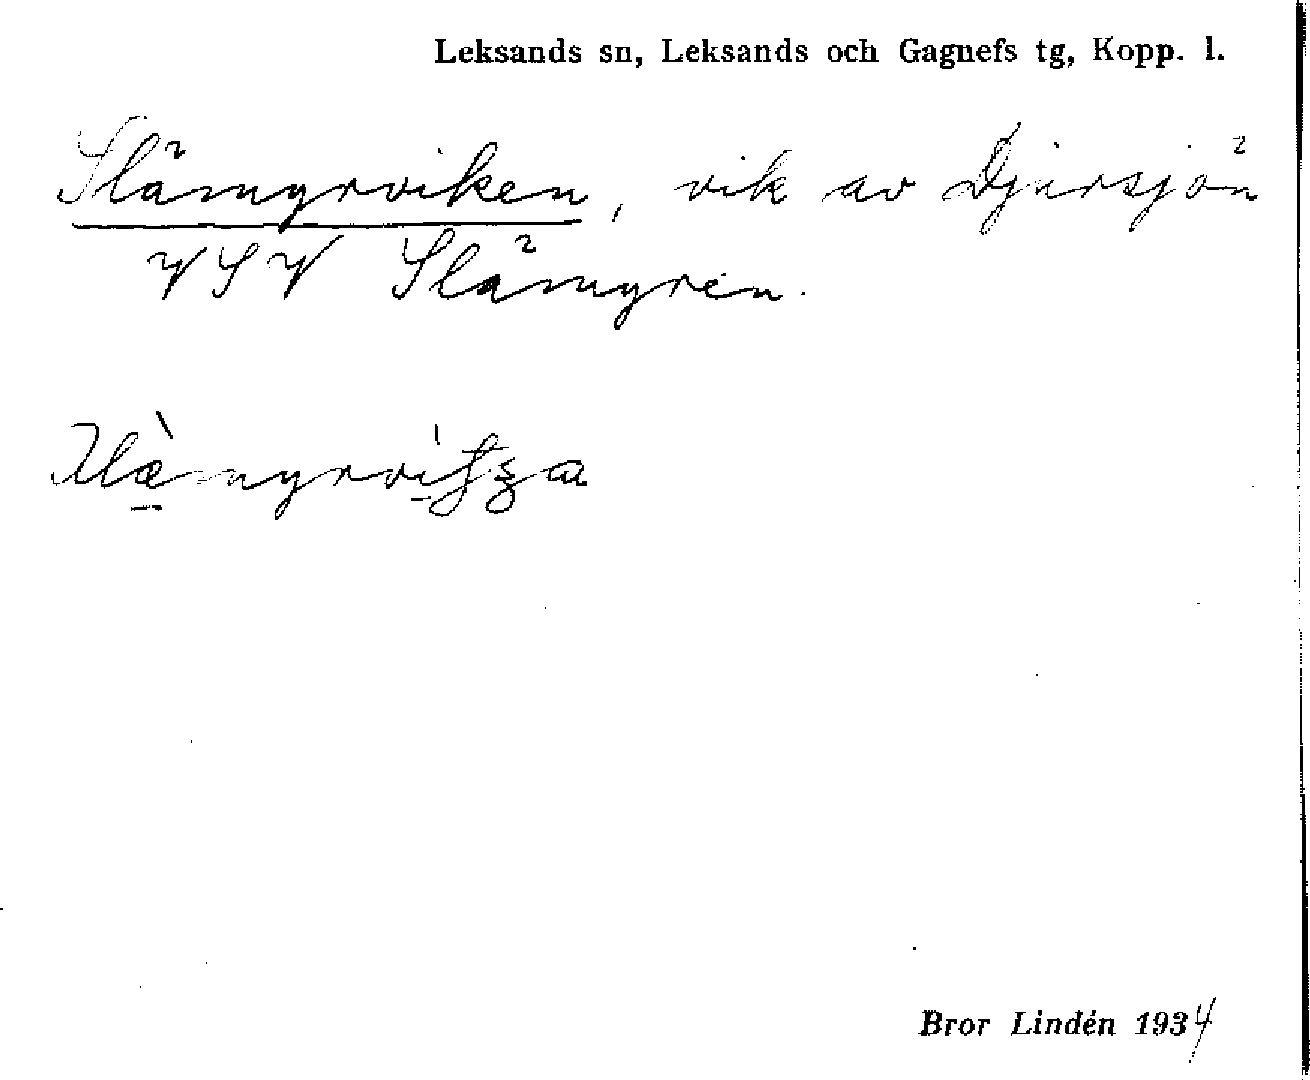 Leksands sn, Leksands och Gagnefs tg, Kopp. l.
Slämyrviken, vik av Djursjön
VSV Slämyren.
Bror Lindén 1934